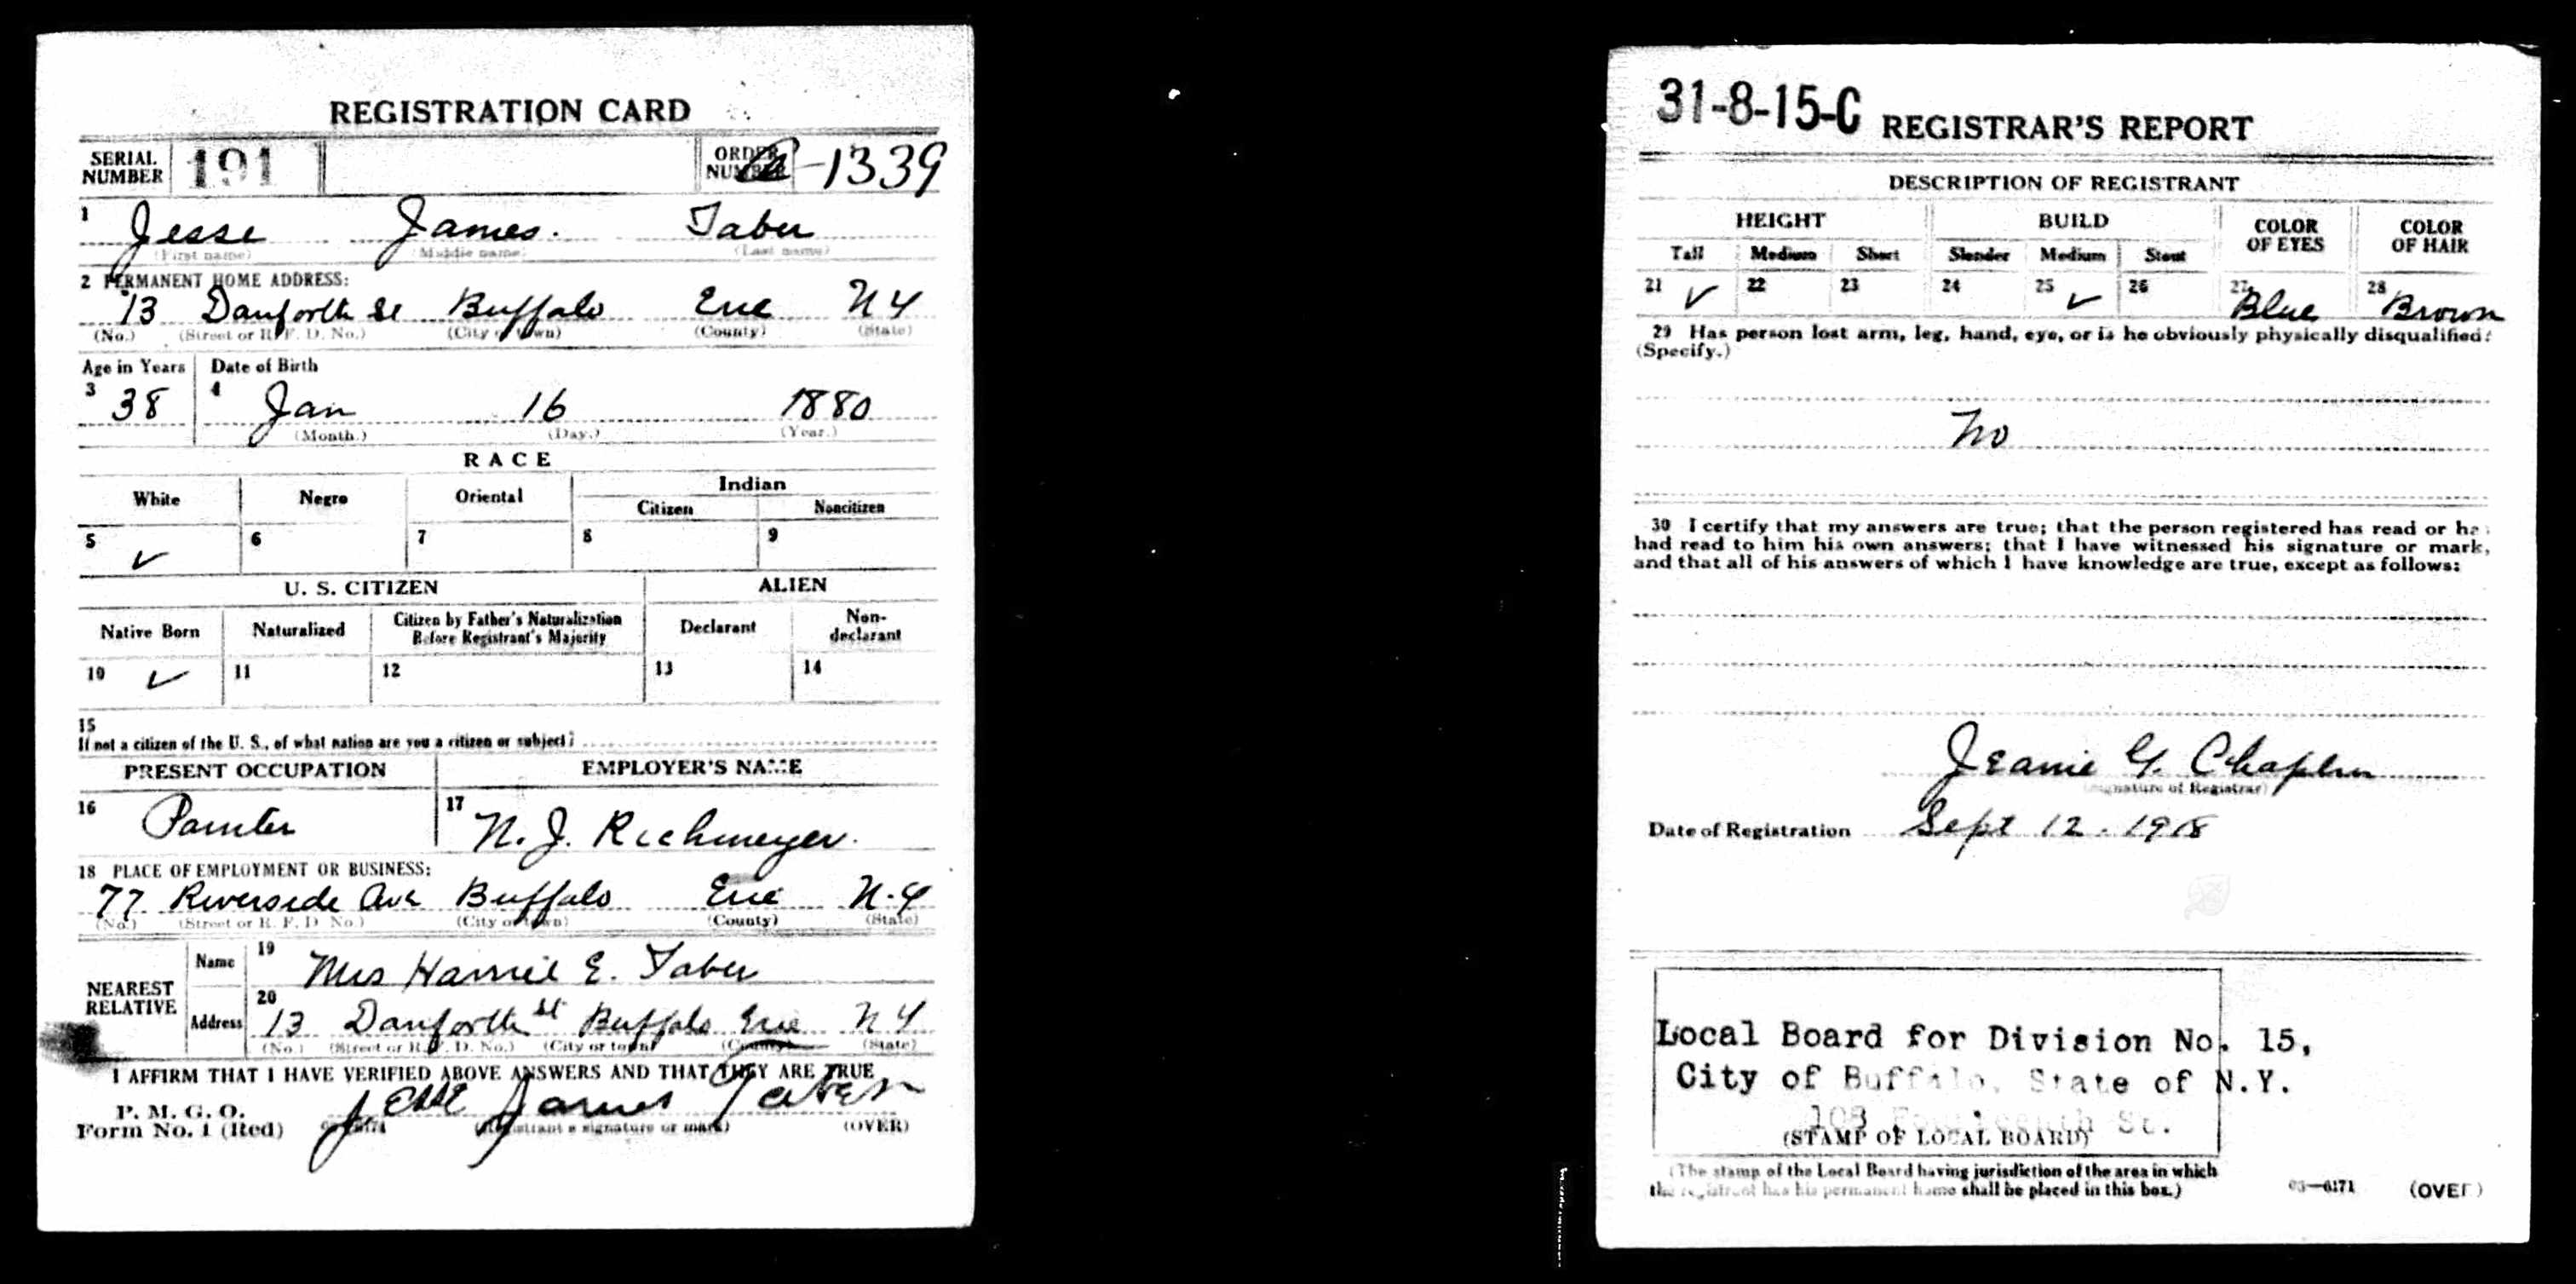 REGISTRATION CARD
SERIAL NUMBER 191 ORDER NUMBER A-1339
1 Jesse James. Taber
(First name) (Middle name) (Last name)
2 PERMANENT HOME ADDRESS:
13 Danforth St Buffalo Erie N Y
(No.) (Street or R. F. D. No.) (City or town) (County) (State)
Age in Years Date of Birth
3 38 4 Jan 16 1880
(Month.) (Day.) (Year.)
RACE
White Negro Oriental Indian
Citizen Noncitizen
5 ✓ 6 7 8 9
U. S. CITIZEN ALIEN
Native Born Naturalized Citizen by Father's Naturalization Before Registrant's Majority Declarant Non-declarant
10 ✓ 11 12 13 14
15
If not a citizen of the U. S., of what nation are you a citizen or subject?
PRESENT OCCUPATION EMPLOYER'S NAME
16 Painter 17 N. J. Richmeyer.
18 PLACE OF EMPLOYMENT OR BUSINESS:
77 Riverside Ave Buffalo Erie N.Y
(No.) (Street or R. F. D. No.) (City or town) (County) (State)
NEAREST RELATIVE
Name 19 Mrs Harriet E. Taber
Address 20 13 Danforth St Buffalo Erie N Y
(No.) (Street or R. F. D. No.) (City or town) (County) (State)
I AFFIRM THAT I HAVE VERIFIED ABOVE ANSWERS AND THAT THEY ARE TRUE
P. M. G. O.
Form No. 1 (Red) Jesse James Taber
(Registrant's signature or mark) (OVER)
31-8-15-C REGISTRAR'S REPORT
DESCRIPTION OF REGISTRANT
HEIGHT BUILD COLOR OF EYES COLOR OF HAIR
Tall Medium Short Slender Medium Stout
21 ✓ 22 23 24 25 ✓ 26 27 Blue 28 Brown
29 Has person lost arm, leg, hand, eye, or is he obviously physically disqualified?
(Specify.)
No
30 I certify that my answers are true; that the person registered has read or has
had read to him his own answers; that I have witnessed his signature or mark,
and that all of his answers of which I have knowledge are true, except as follows:
Jeanie G. Chaplin
(Signature of Registrar)
Date of Registration Sept 12. 1918
Local Board for Division No. 15,
City of Buffalo, State of N.Y.
103 Fourteenth St.
(STAMP OF LOCAL BOARD)
(The stamp of the Local Board having jurisdiction of the area in which
the registrant has his permanent home shall be placed in this box.)
03—6171 (OVER)